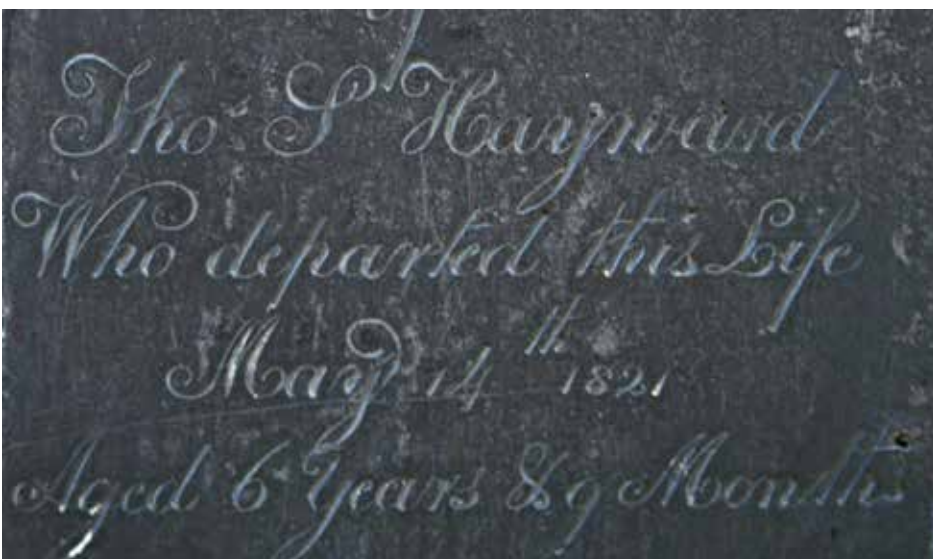 Thos S Hayward
Who departed this Life
May 14th 1821
Aged 6 Years & 9 Months